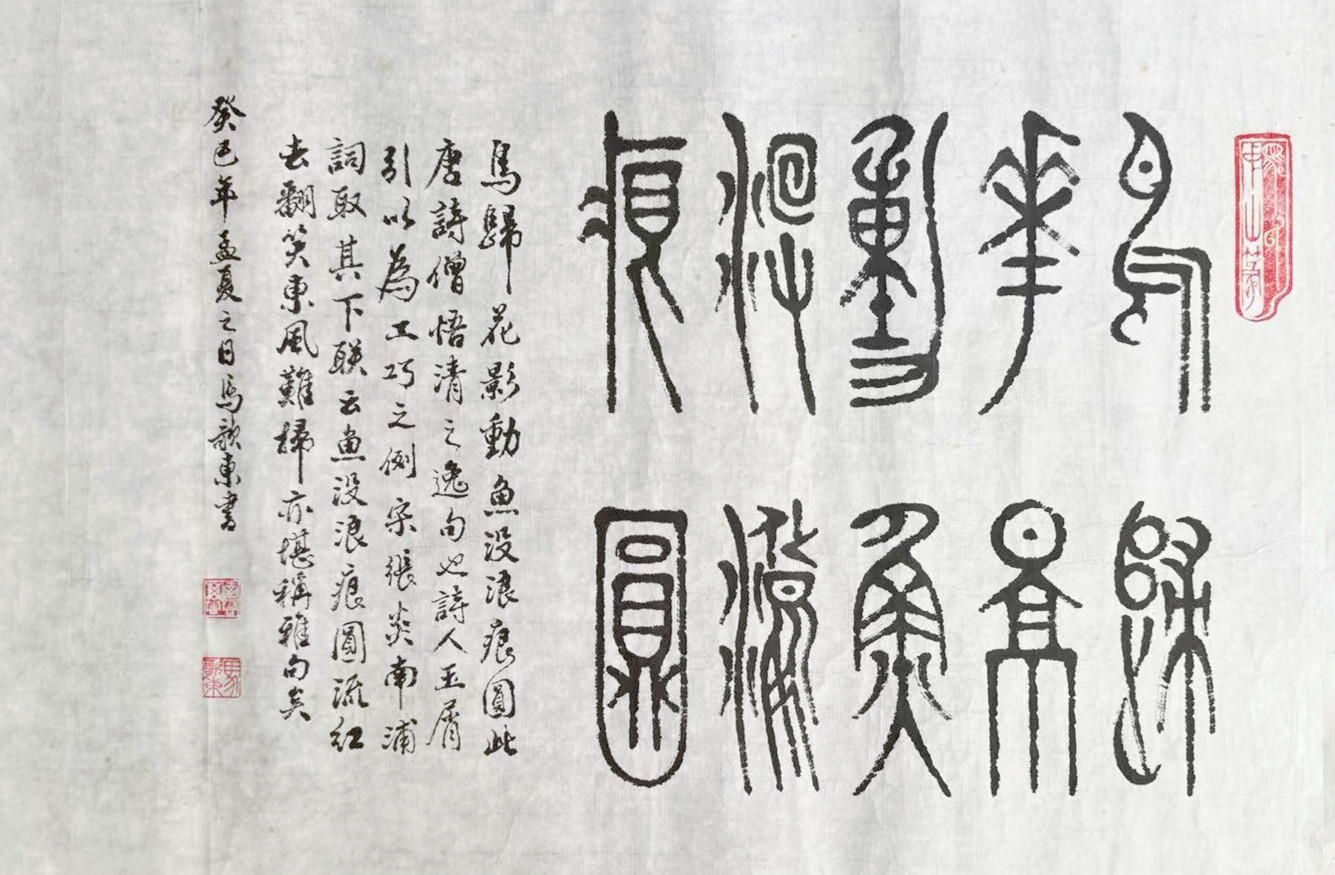 鳥歸
華景
動魚
沒浪
痕圓
鳥歸花影動魚没浪痕圓此
唐詩僧悟清之逸句也詩人玉屑
引以為工巧之例宋張炎南浦
詞取其下联云魚没浪痕圓流红
去翻笑東風難掃亦堪稱雅句矣
癸巳年孟夏之日馬歌東書